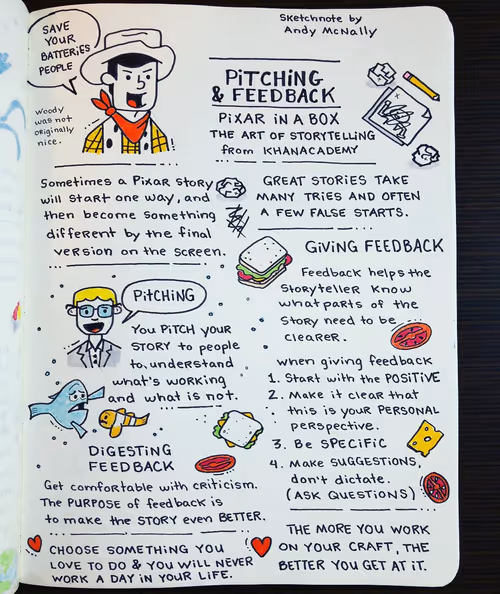 SAVE
YOUR
BATTERIES
PEOPLE
Woody
was not
originally
nice.
Sketchnote by
Andy McNally
PiTCHiNG
& FEEDBACK
PiXAR iN A BOX
THE ART OF STORYTELLING
from KHANACADEMY
Sometimes a Pixar story
will start one way, and
then become something
different by the final
version on the screen.
GREAT STORiES TAKE
MANY TRiES AND OFTEN
A FEW FALSE STARTS.
PiTCHiNG
You PiTCH your
STORY to people
to understand
what's working
and what is not.
GiViNG FEEDBACK
Feedback helps the
Storyteller know
what parts of the
Story need to be
cLEARER.
when giving feedback
1. Start with the POSiTiVE
2. Make it clear that
this is your PERSONAL
perspective.
3. Be SPECiFiC
4. Make SUGGESTiONS,
don't dictate.
(ASK QUESTiONS)
DiGESTiNG
FEEDBACK
Get comfortable with criticism.
The PURPOSE of feedback is
to make the STORY even BETTER.
CHOOSE SOMETHiNG YOU
LOVE TO DO & YOU WiLL NEVER
WORK A DAY iN YOUR LiFE.
THE MORE YOU WORK
ON YOUR CRAFT, THE
BETTER YOU GET AT iT.